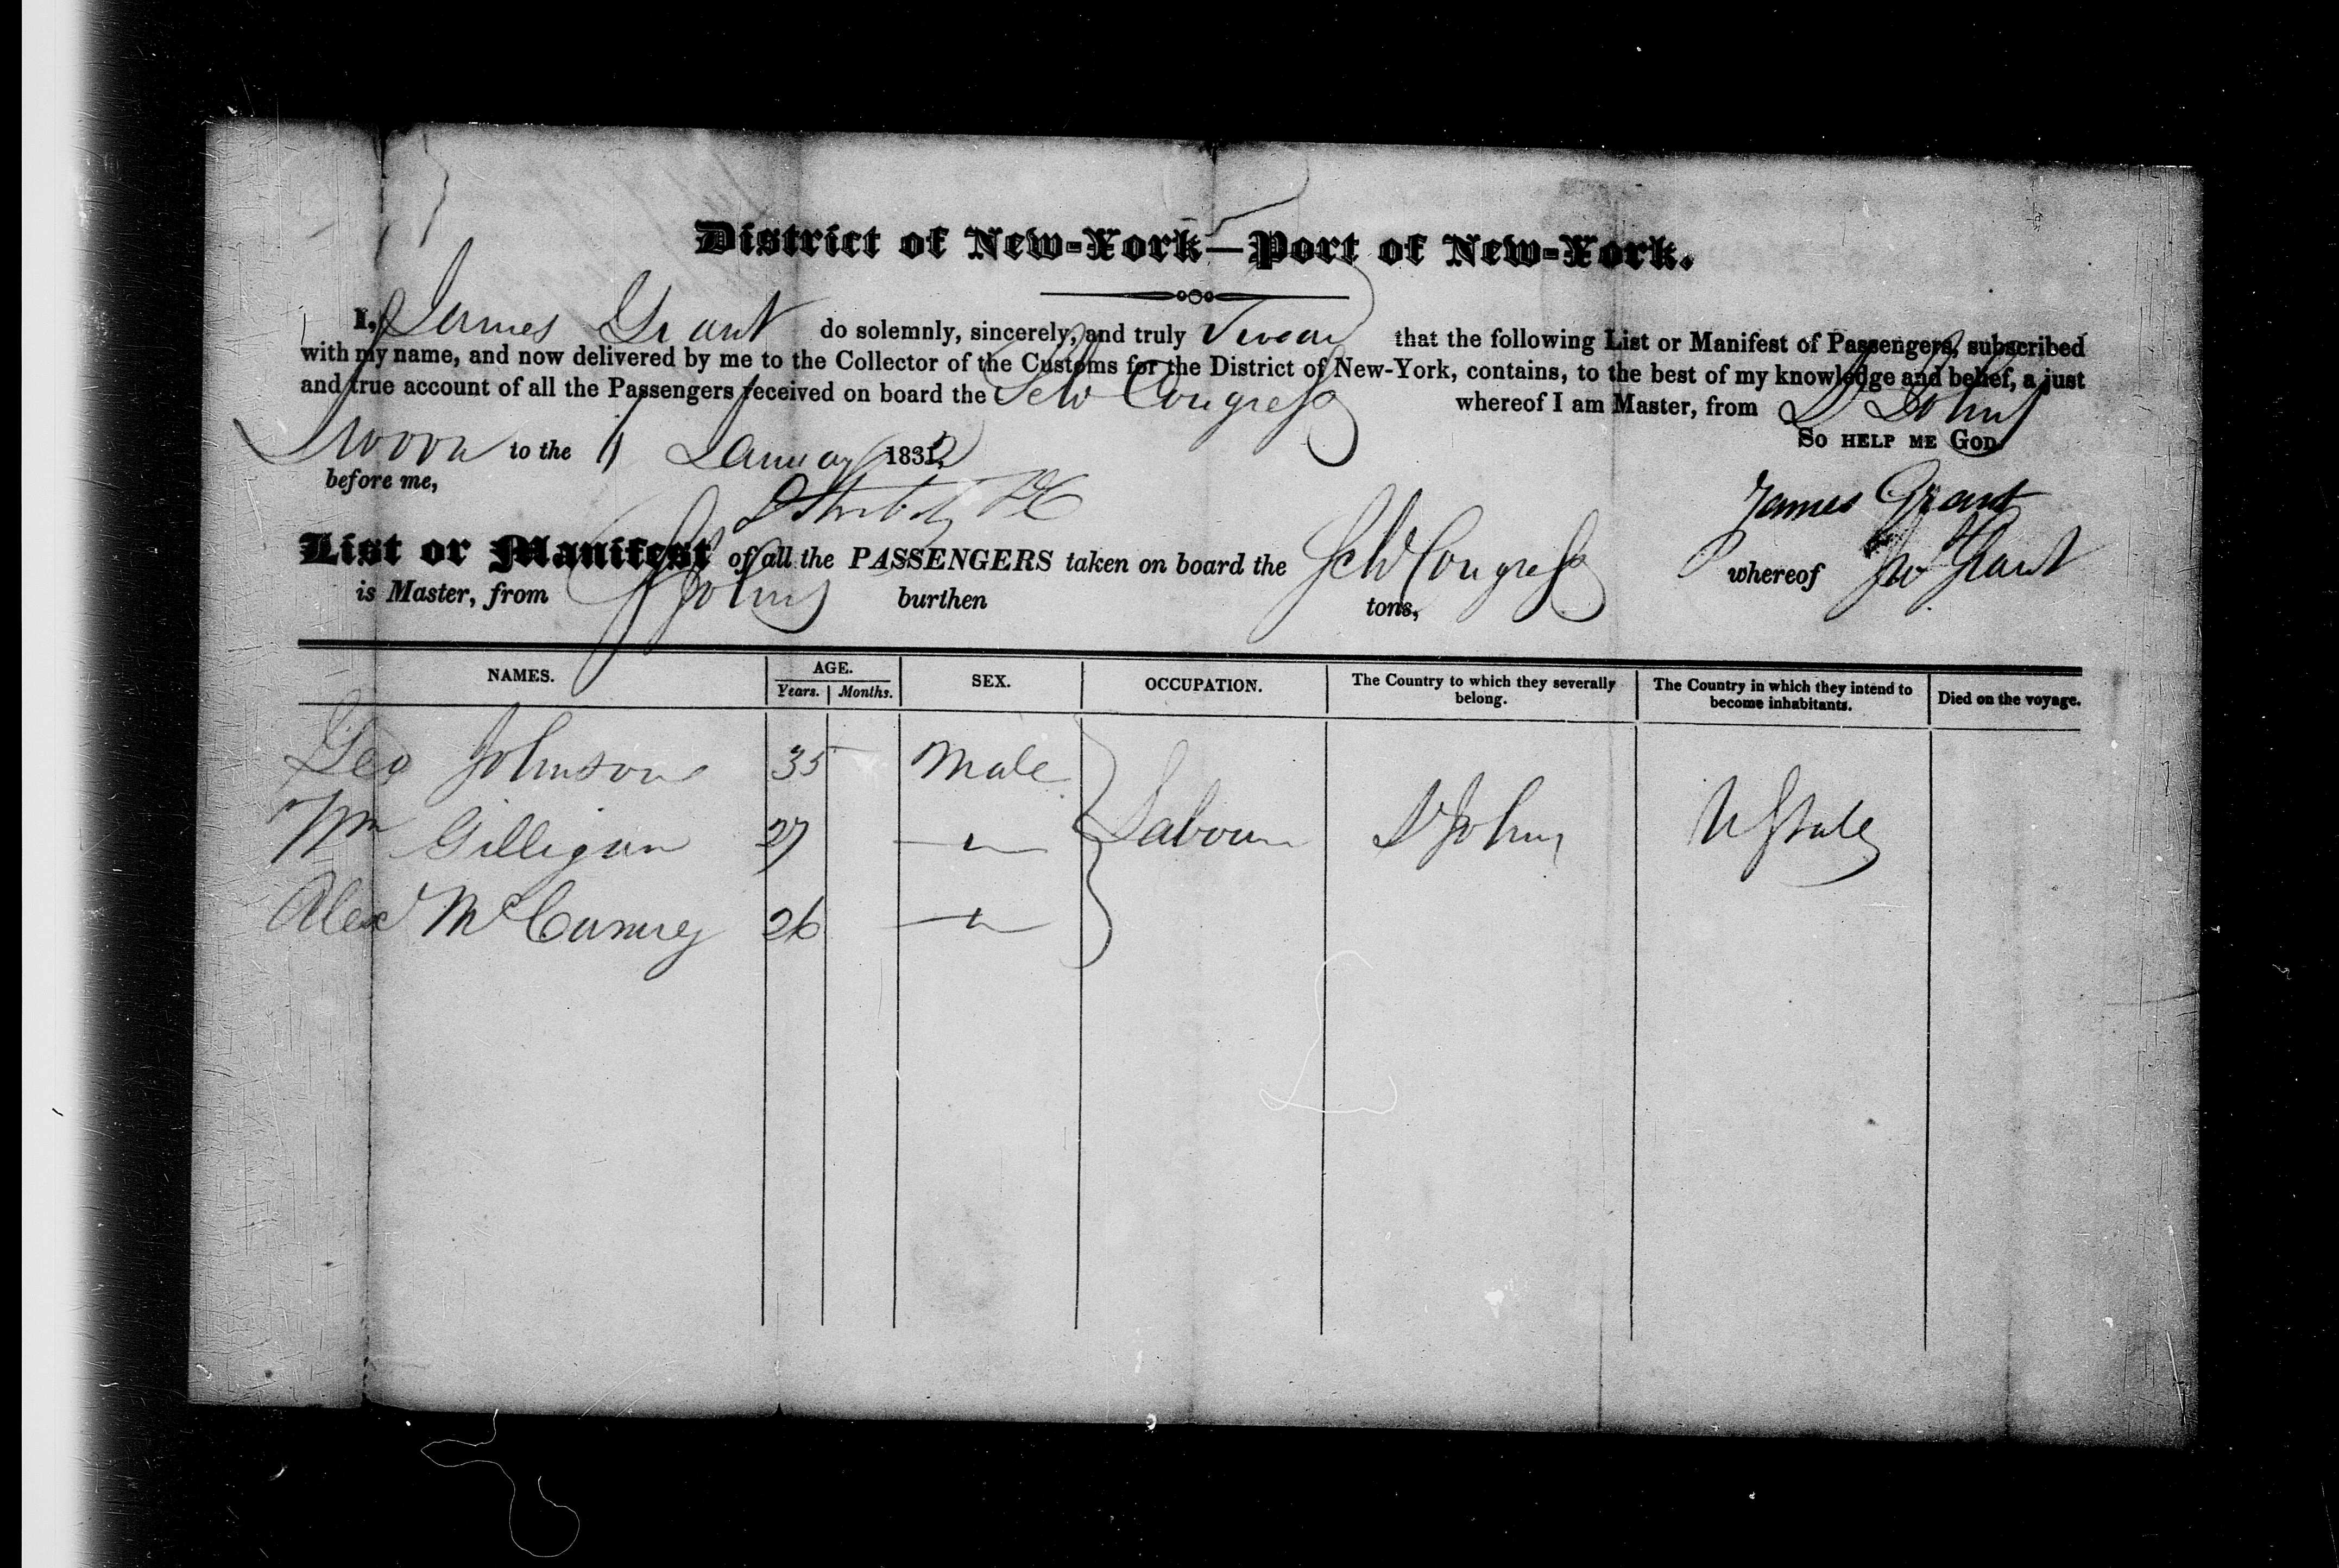 District of New-York—Port of New-York.
I, James Grant do solemnly, sincerely, and truly Swear that the following List or Manifest of Passengers, subscribed
with my name, and now delivered by me to the Collector of the Customs for the District of New-York, contains, to the best of my knowledge and belief, a just
and true account of all the Passengers received on board the Sch Congress whereof I am Master, from St Johns
Sworn to the January 1832 So HELP ME GOD.
before me,
James Grant
List or Manifest of all the PASSENGERS taken on board the Sch Congress whereof Grant
is Master, from St Johns burthen tons,
NAMES. AGE. SEX. OCCUPATION. The Country to which they severally belong. The Country in which they intend to become inhabitants. Died on the voyage.
Years. Months.
Geo Johnson 35 Male
Wm Gilligan 27 " Labour St Johns U States
Alex 26 "